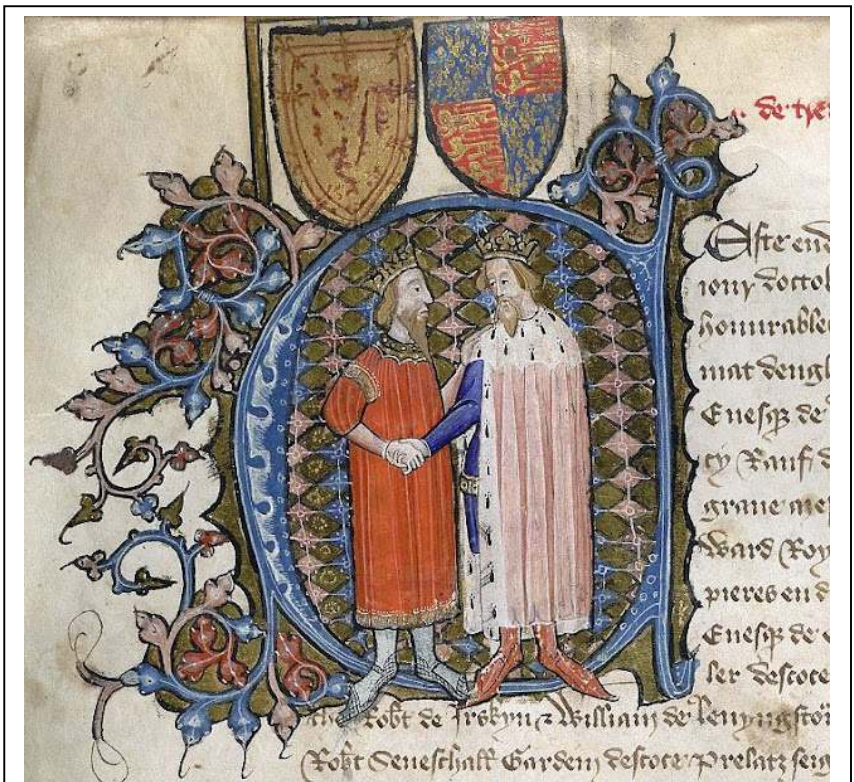 de tre
Cest end
iony doctor
honurable
mat dengl
Euesqe de
cy Rauf d
graue me
Ward Roy
pieres en d
Euesqe de
ler descoce
the Robt de Irskyn & William de leuyngston
Robt Seneschall Gardein descoce prelatz seig